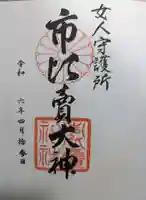 女人守護所
市比賣大神
令和六年四月拾壱日